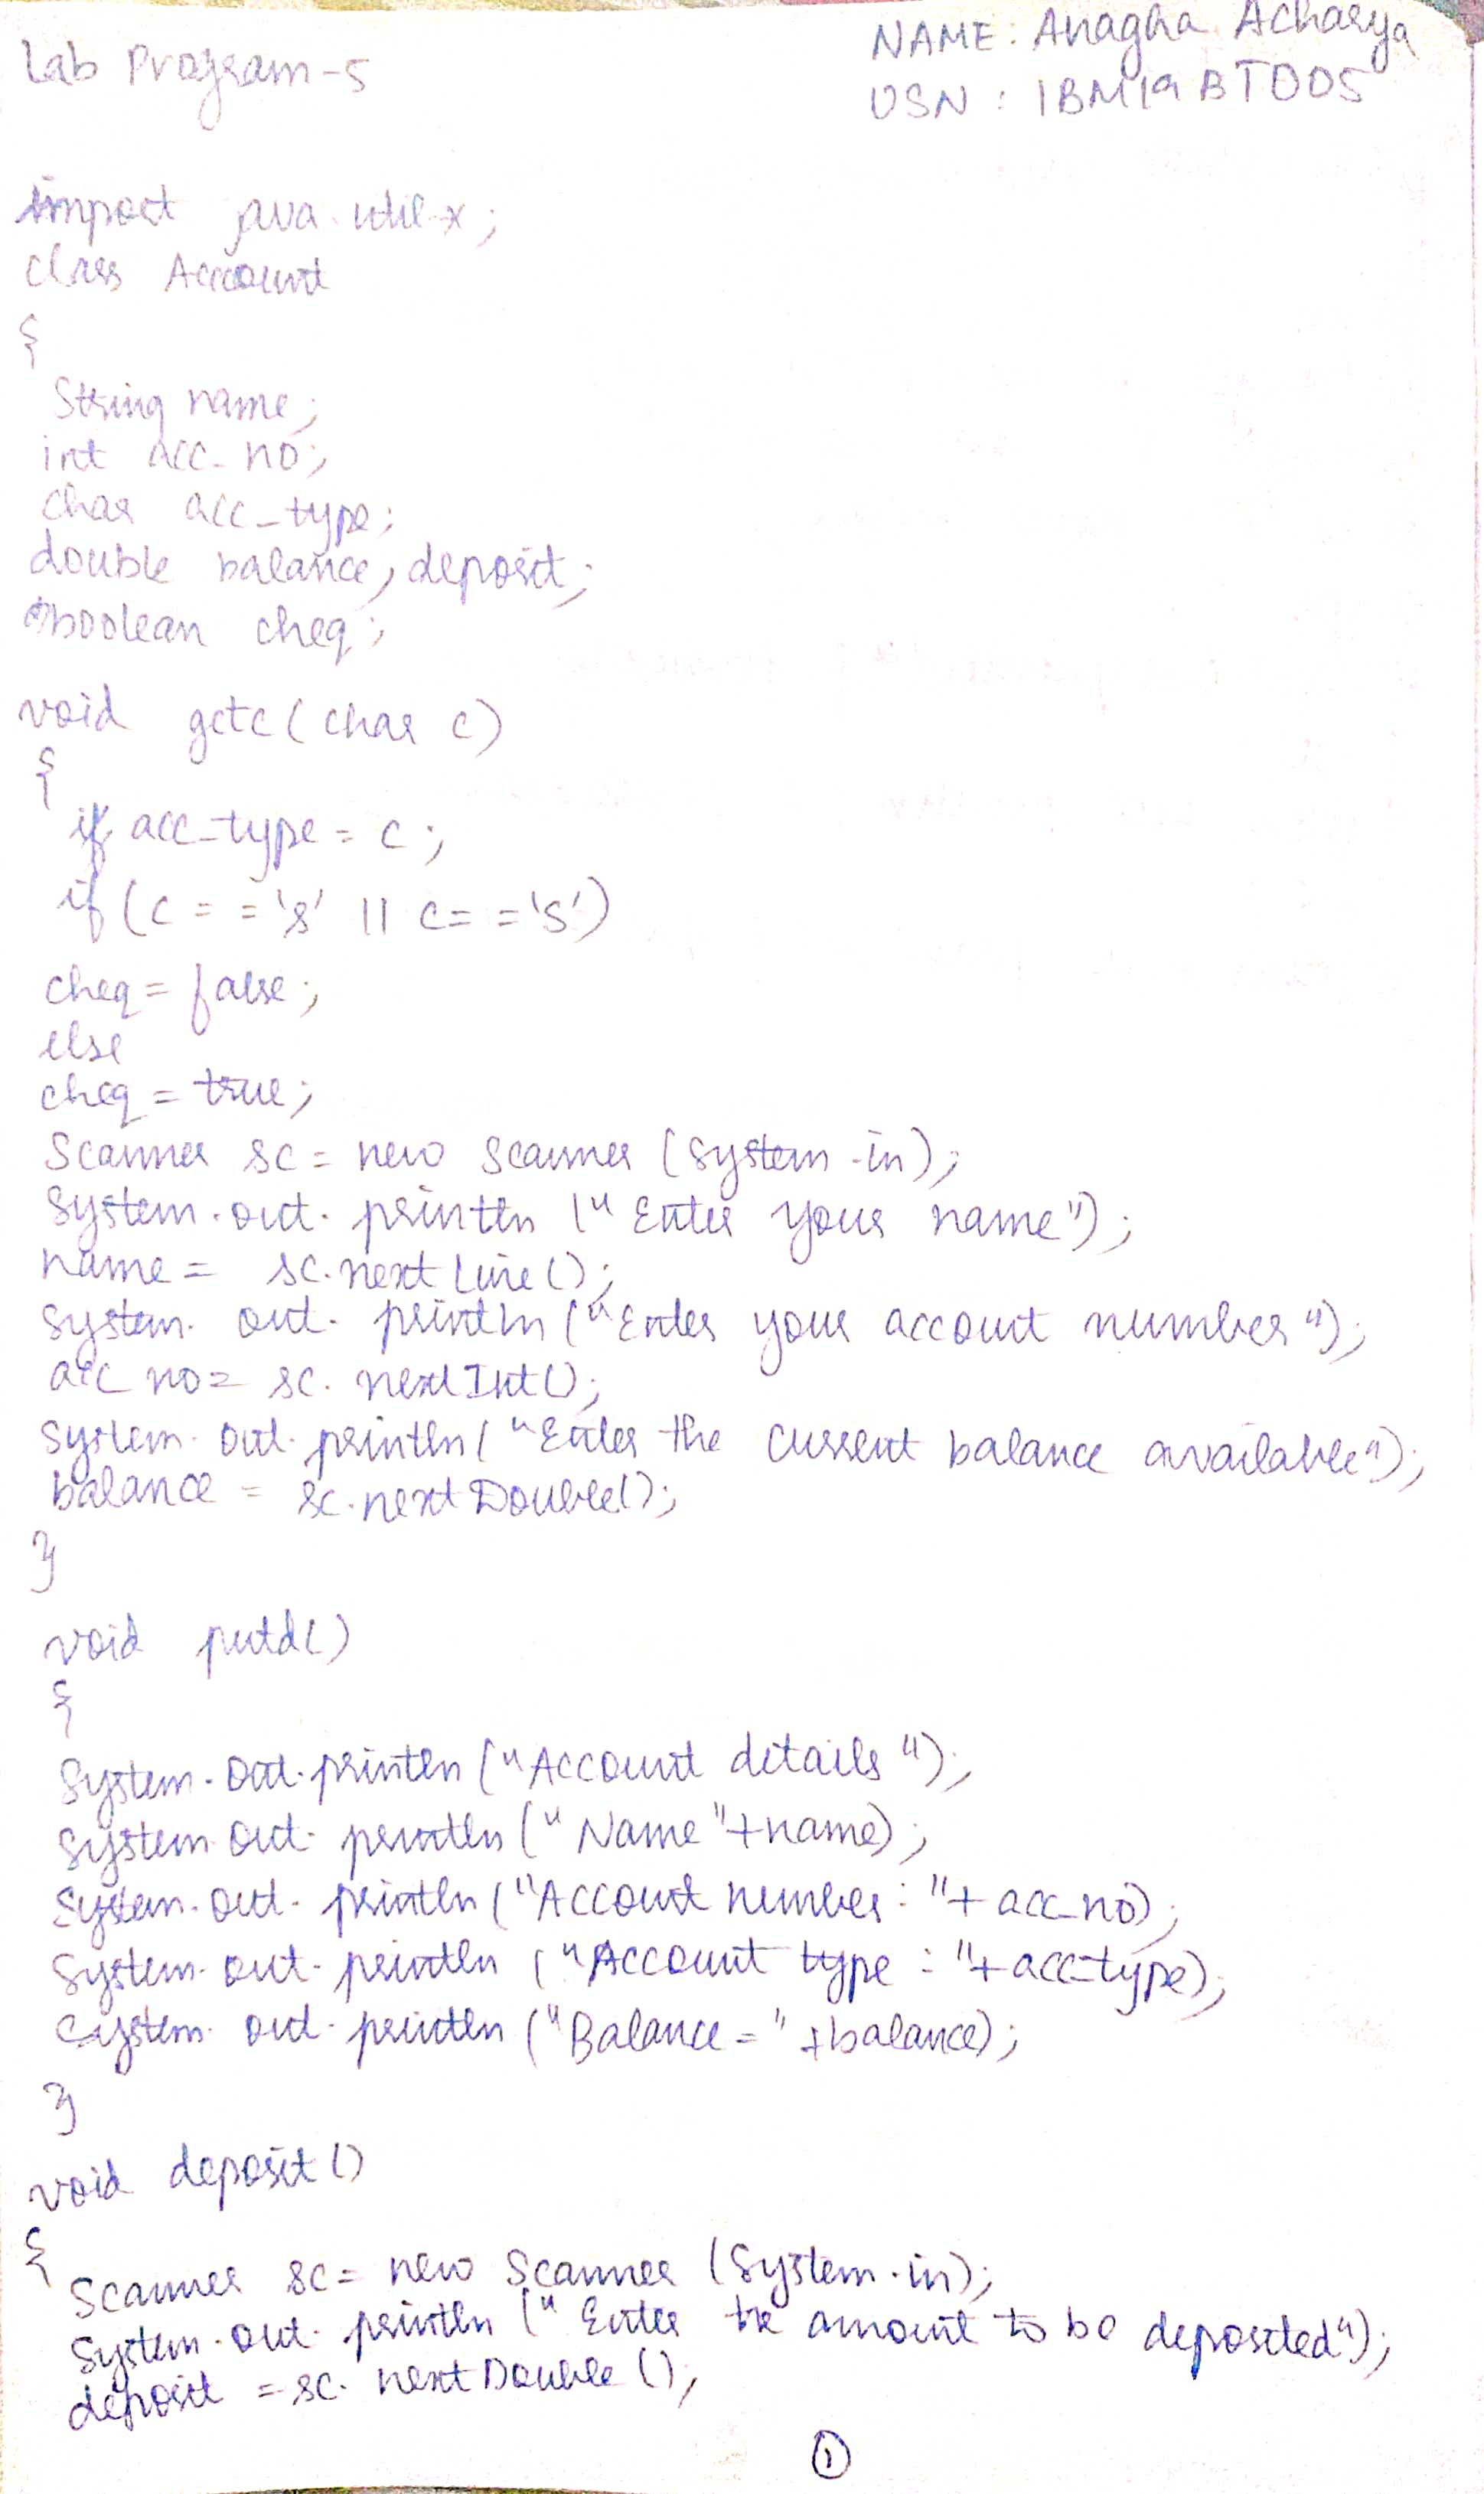 Lab Program-5
NAME: Anagha Acharya
USN: 1BM19BT005
import java.util.*;
class Account
{
String name;
int acc_no;
char acc_type;
double balance, deposit;
boolean cheq;
void getc(char c)
{
if acc_type = c;
if (c=='s' || c=='S')
cheq = false;
else
cheq = true;
Scanner sc = new Scanner (System.in);
System.out.println ("Enter your name");
name = sc.nextLine();
System.out.println ("Enter your account number");
acc no= sc.nextInt();
System.out.println("Enter the current balance available");
balance = sc.nextDouble();
}
void putd()
{
System.out.println ("Account details");
System.out.println ("Name"+name);
System.out.println ("Account number: "+ acc_no);
System.out.println ("Account type : "+acc_type);
System.out.println ("Balance = " +balance);
}
void deposit()
{
Scanner sc = new Scanner (System.in);
System.out.println ("Enter the amount to be deposited");
deposit = sc.nextDouble();
1